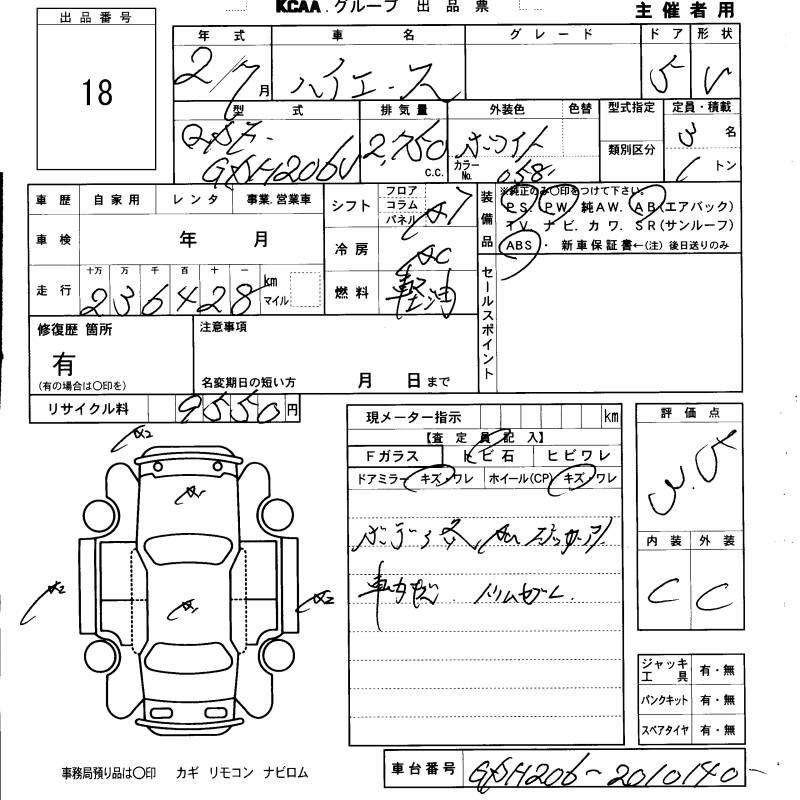 KCAA.グループ 出品票
主催者用
出品番号
18
年式
2/7月
車名
ハイエース
グレード
ドア
5
形状
V
型式
QDF-
GDH206V
排気量
2,750
C.C.
外装色
ホワイト
色替
カラーNo.
058
型式指定
類別区分
定員・積載
3名
1トン
車歴 自家用 レンタ 事業.営業車
車検 年 月
走行
十万 万 千 百 十 一
236428
km
マイル
シフト
フロア
コラム
パネル
A7
冷房
AC
燃料
軽油
装備品
※純正のみ〇印をつけて下さい。
PS. PW. 純AW. AB(エアバック)
TV. ナビ. カワ. SR(サンルーフ)
ABS ・ 新車保証書←(注) 後日送りのみ
セールスポイント
修復歴 箇所
有
(有の場合は〇印を)
注意事項
名変期日の短い方 月 日まで
リサイクル料 9550円
現メーター指示 km
【査定員記入】
Fガラス トビ石 ヒビワレ
ドアミラー キズ・ワレ ホイール(CP) キズ・ワレ
評価点
3.5
内装 外装
C C
A2
A1
A2
A1
A2
ジャッキ工具 有・無
パンクキット 有・無
スペアタイヤ 有・無
車台番号 GDH206-2010140-
事務局預り品は〇印 カギ リモコン ナビロム